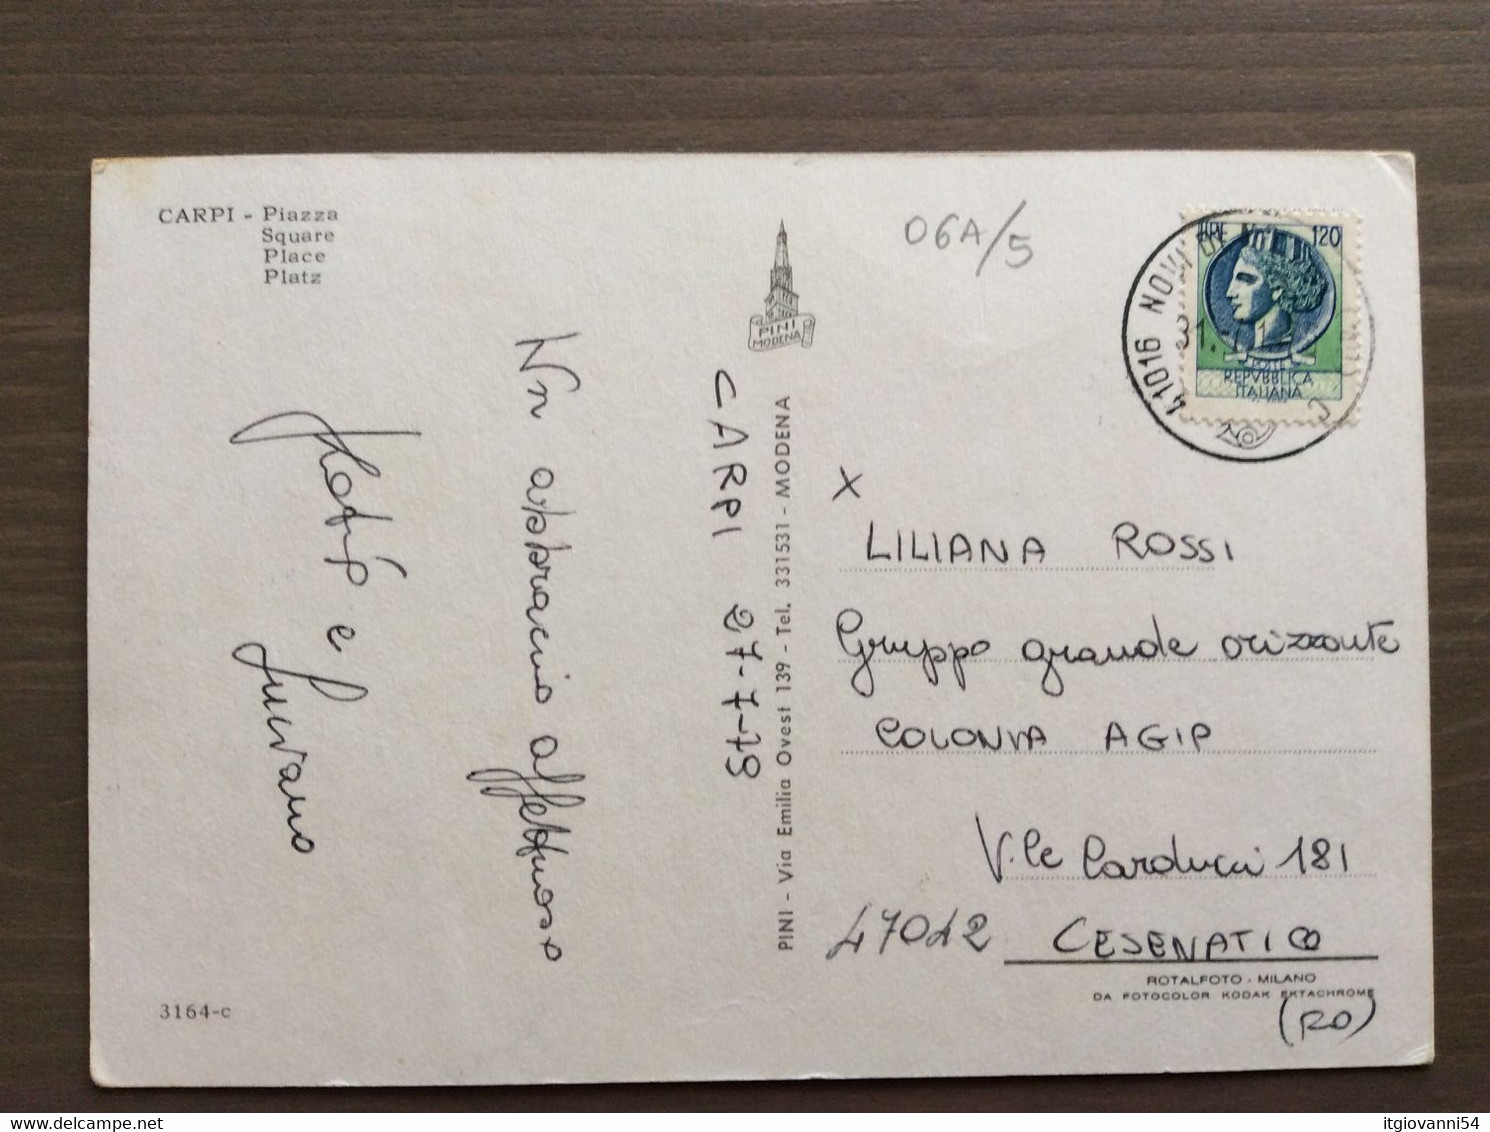 CARPI - Piazza
Square
Place
Platz
06A/5
PINI
MODENA
LIRE 120
REPVBBLICA
ITALIANA
41016 NOVI DI
CARPI 27-7-79
Un abbraccio affettuoso
e
PINI - Via Emilia Ovest 139 - Tel. 331531 - MODENA
X
LILIANA ROSSI
Gruppo grande orizzonte
COLONIA AGIP
V.le Carducci 181
47042 CESENATICO
(FO)
ROTALFOTO - MILANO
DA FOTOCOLOR KODAK EKTACHROME
3164-c
itgiovanni54